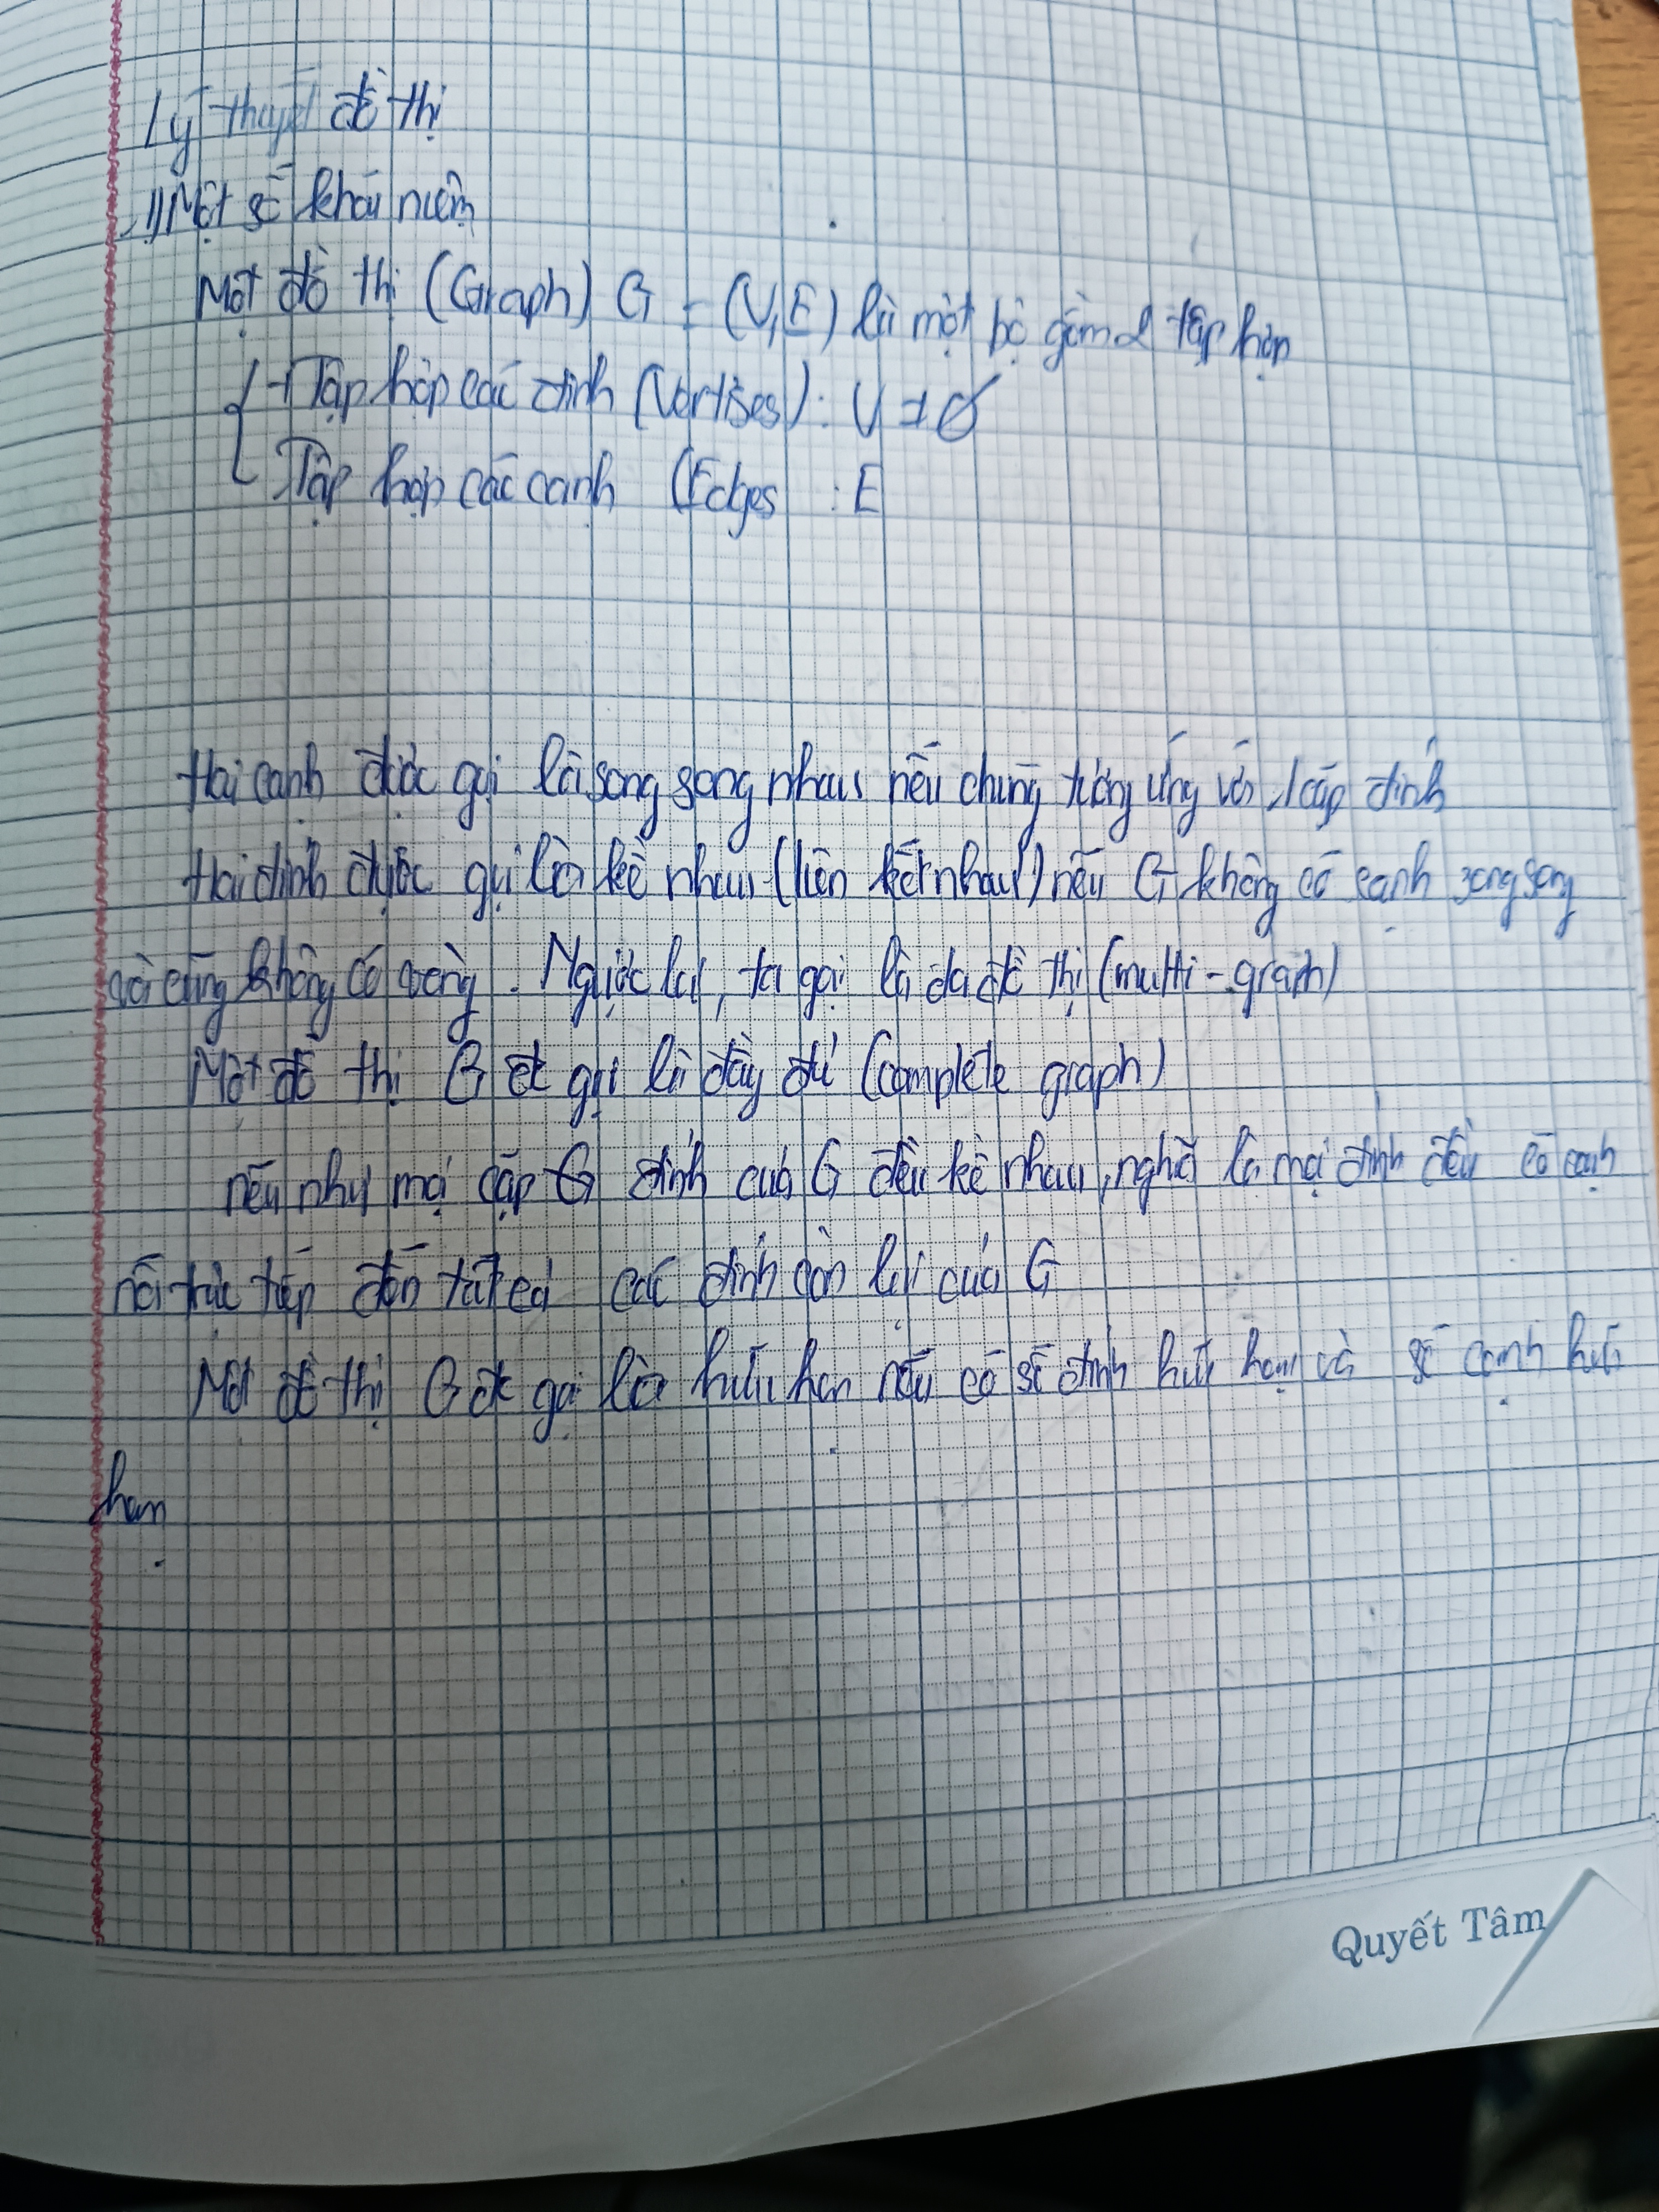 Lý thuyết đồ thị
1) Một số khái niệm
Một đồ thị (Graph) G = (V, E) là một bộ gồm 2 tập hợp
Tập hợp các đỉnh (Vertises) : V ≠ ∅
Tập hợp các cạnh (Edges : E
Hai cạnh được gọi là song song nhau nếu chúng tương ứng với 1 cặp đỉnh
Hai đỉnh được gọi là kề nhau (liên kết nhau) nếu G không có cạnh song song
và cũng không có vòng. Ngược lại, ta gọi là đa đồ thị (multi-graph)
Một đồ thị G đc gọi là đầy đủ (complete graph)
nếu như mọi cặp đỉnh của G đều kề nhau, nghĩa là mọi đỉnh đều có cạnh
nối trực tiếp đến tất cả các đỉnh còn lại của G
Một đồ thị G đc gọi là hữu hạn nếu có số đỉnh hữu hạn và số cạnh hữu
hạn
Quyết Tâm